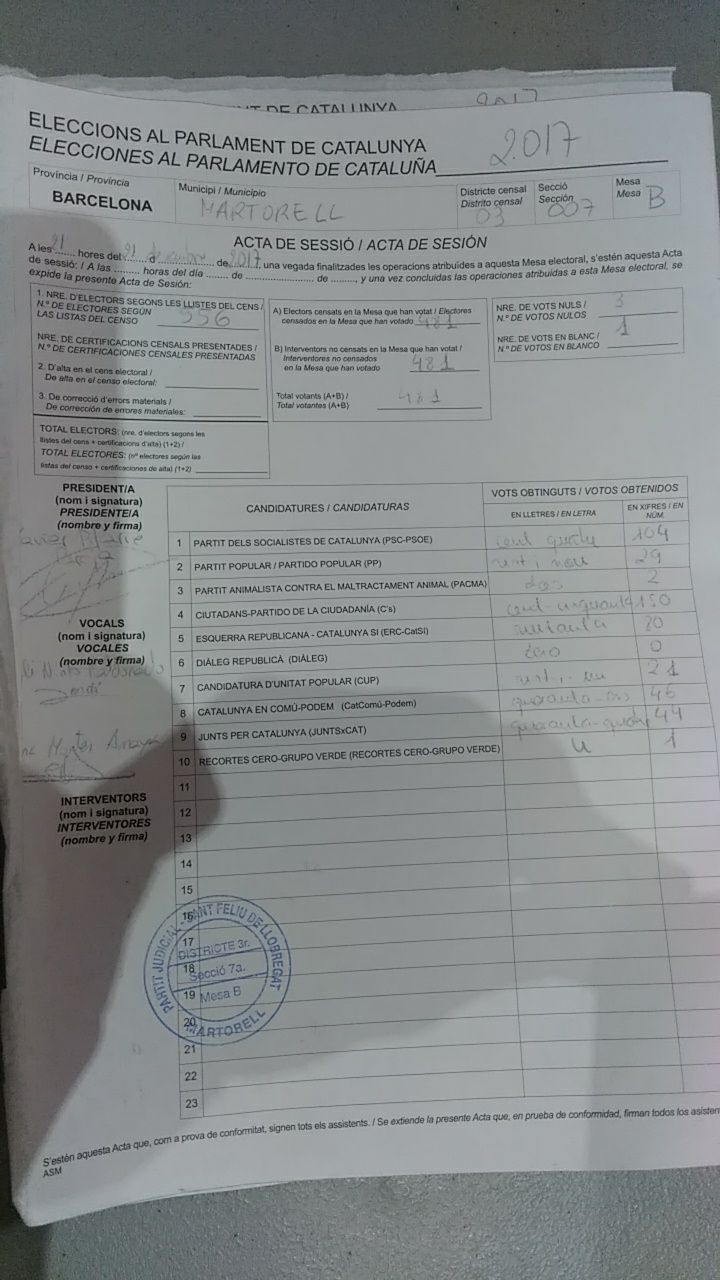 NT DE CATALUNYA 2017
ELECCIONS AL PARLAMENT DE CATALUNYA
ELECCIONES AL PARLAMENTO DE CATALUÑA 2017
Província / Provincia
BARCELONA
Municipi / Municipio
MARTORELL
Districte censal
Distrito censal
03
Secció
Sección
007
Mesa
Mesa
B
ACTA DE SESSIÓ / ACTA DE SESIÓN
A les 21 hores del 21 d desembre de 2017, una vegada finalitzades les operacions atribuïdes a aquesta Mesa electoral, s'estén aquesta Acta
de sessió: / A las ........ horas del día ........ de ........ de ........, y una vez concluidas las operaciones atribuidas a esta Mesa electoral, se
expide la presente Acta de Sesión:
1. NRE. D'ELECTORS SEGONS LES LLISTES DEL CENS /
N.º DE ELECTORES SEGÚN
LAS LISTAS DEL CENSO 556
NRE. DE CERTIFICACIONS CENSALS PRESENTADES /
N.º DE CERTIFICACIONES CENSALES PRESENTADAS
2. D'alta en el cens electoral /
De alta en el censo electoral:
3. De correcció d'errors materials /
De corrección de errores materiales:
TOTAL ELECTORS: (nre. d'electors segons les
llistes del cens + certificacions d'alta) (1+2) /
TOTAL ELECTORES: (nº electores según las
listas del censo + certificaciones de alta) (1+2)
A) Electors censats en la Mesa que han votat / Electores
censados en la Mesa que han votado 481
B) Interventors no censats en la Mesa que han votat /
Interventores no censados
en la Mesa que han votado 481
Total votants (A+B) /
Total votantes (A+B) 481
NRE. DE VOTS NULS /
N.º DE VOTOS NULOS 3
NRE. DE VOTS EN BLANC /
N.º DE VOTOS EN BLANCO 1
PRESIDENT/A
(nom i signatura)
PRESIDENTE/A
(nombre y firma)
VOCALS
(nom i signatura)
VOCALES
(nombre y firma)
INTERVENTORS
(nom i signatura)
INTERVENTORES
(nombre y firma)
CANDIDATURES / CANDIDATURAS
VOTS OBTINGUTS / VOTOS OBTENIDOS
EN LLETRES / EN LETRA
EN XIFRES / EN NÚM.
1 PARTIT DELS SOCIALISTES DE CATALUNYA (PSC-PSOE) cent quatre 104
2 PARTIT POPULAR / PARTIDO POPULAR (PP) vint i nou 29
3 PARTIT ANIMALISTA CONTRA EL MALTRACTAMENT ANIMAL (PACMA) dos 2
4 CIUTADANS-PARTIDO DE LA CIUDADANÍA (C's) cent cinquanta 150
5 ESQUERRA REPUBLICANA - CATALUNYA SI (ERC-CatSI) vuitanta 80
6 DIÀLEG REPUBLICÀ (DIÀLEG) zero 0
7 CANDIDATURA D'UNITAT POPULAR (CUP) vint-i-un 21
8 CATALUNYA EN COMÚ-PODEM (CatComú-Podem) quaranta-sis 46
9 JUNTS PER CATALUNYA (JUNTSxCAT) quaranta-quatre 44
10 RECORTES CERO-GRUPO VERDE (RECORTES CERO-GRUPO VERDE) u 1
11
12
13
14
15
16
17
18
19
20
21
22
23
PARTIT JUDICIAL - SANT FELIU DE LLOBREGAT
DISTRICTE 3r.
Secció 7a.
Mesa B
MARTORELL
S'estén aquesta Acta que, com a prova de conformitat, signen tots els assistents. / Se extiende la presente Acta que, en prueba de conformidad, firman todos los asisten
ASM